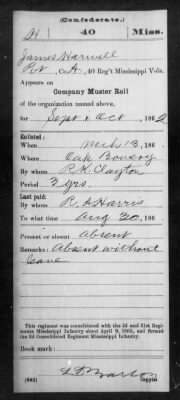 (Confederate.)
H | 40 | Miss.
James Harwell
Pvt, Co. A, 40 Reg't Mississippi Vols.
Appears on
Company Muster Roll
of the organization named above,
for Sept & Oct, 1862
Enlisted:
When 13, 186
Where Oak
By whom P. H. Clayton
Period 3 yrs.
Last paid:
By whom R. A. Harris
To what time Aug 30, 186
Present or absent absent
Remarks: Absent without
leave
This regiment was consolidated with the 3d and 31st Regiments Mississippi Infantry about April 9, 1865, and formed the 3d Consolidated Regiment Mississippi Infantry.
Book mark:
(642)
Copyist.